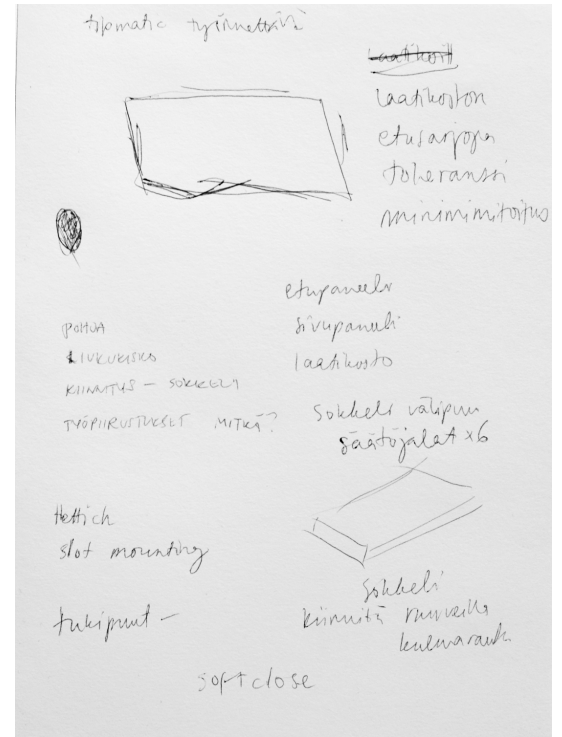 tipmatic työnnettävä
Laatikosto
laatikoston
etusarjopa
toleranssi
minimimitoitus
etupaneeli
sivupaneeli
laatikosto
POHJA
LIUKUKISKO
KIINNITYS – SOKKELI
TYÖPIIRUSTUKSET MITKÄ?
Sokkeli välipuu
säätöjalat x6
Hettich
slot mounting
Sokkeli
kiinnitä ruuveilla
kulmarauta
tukipuut –
softclose